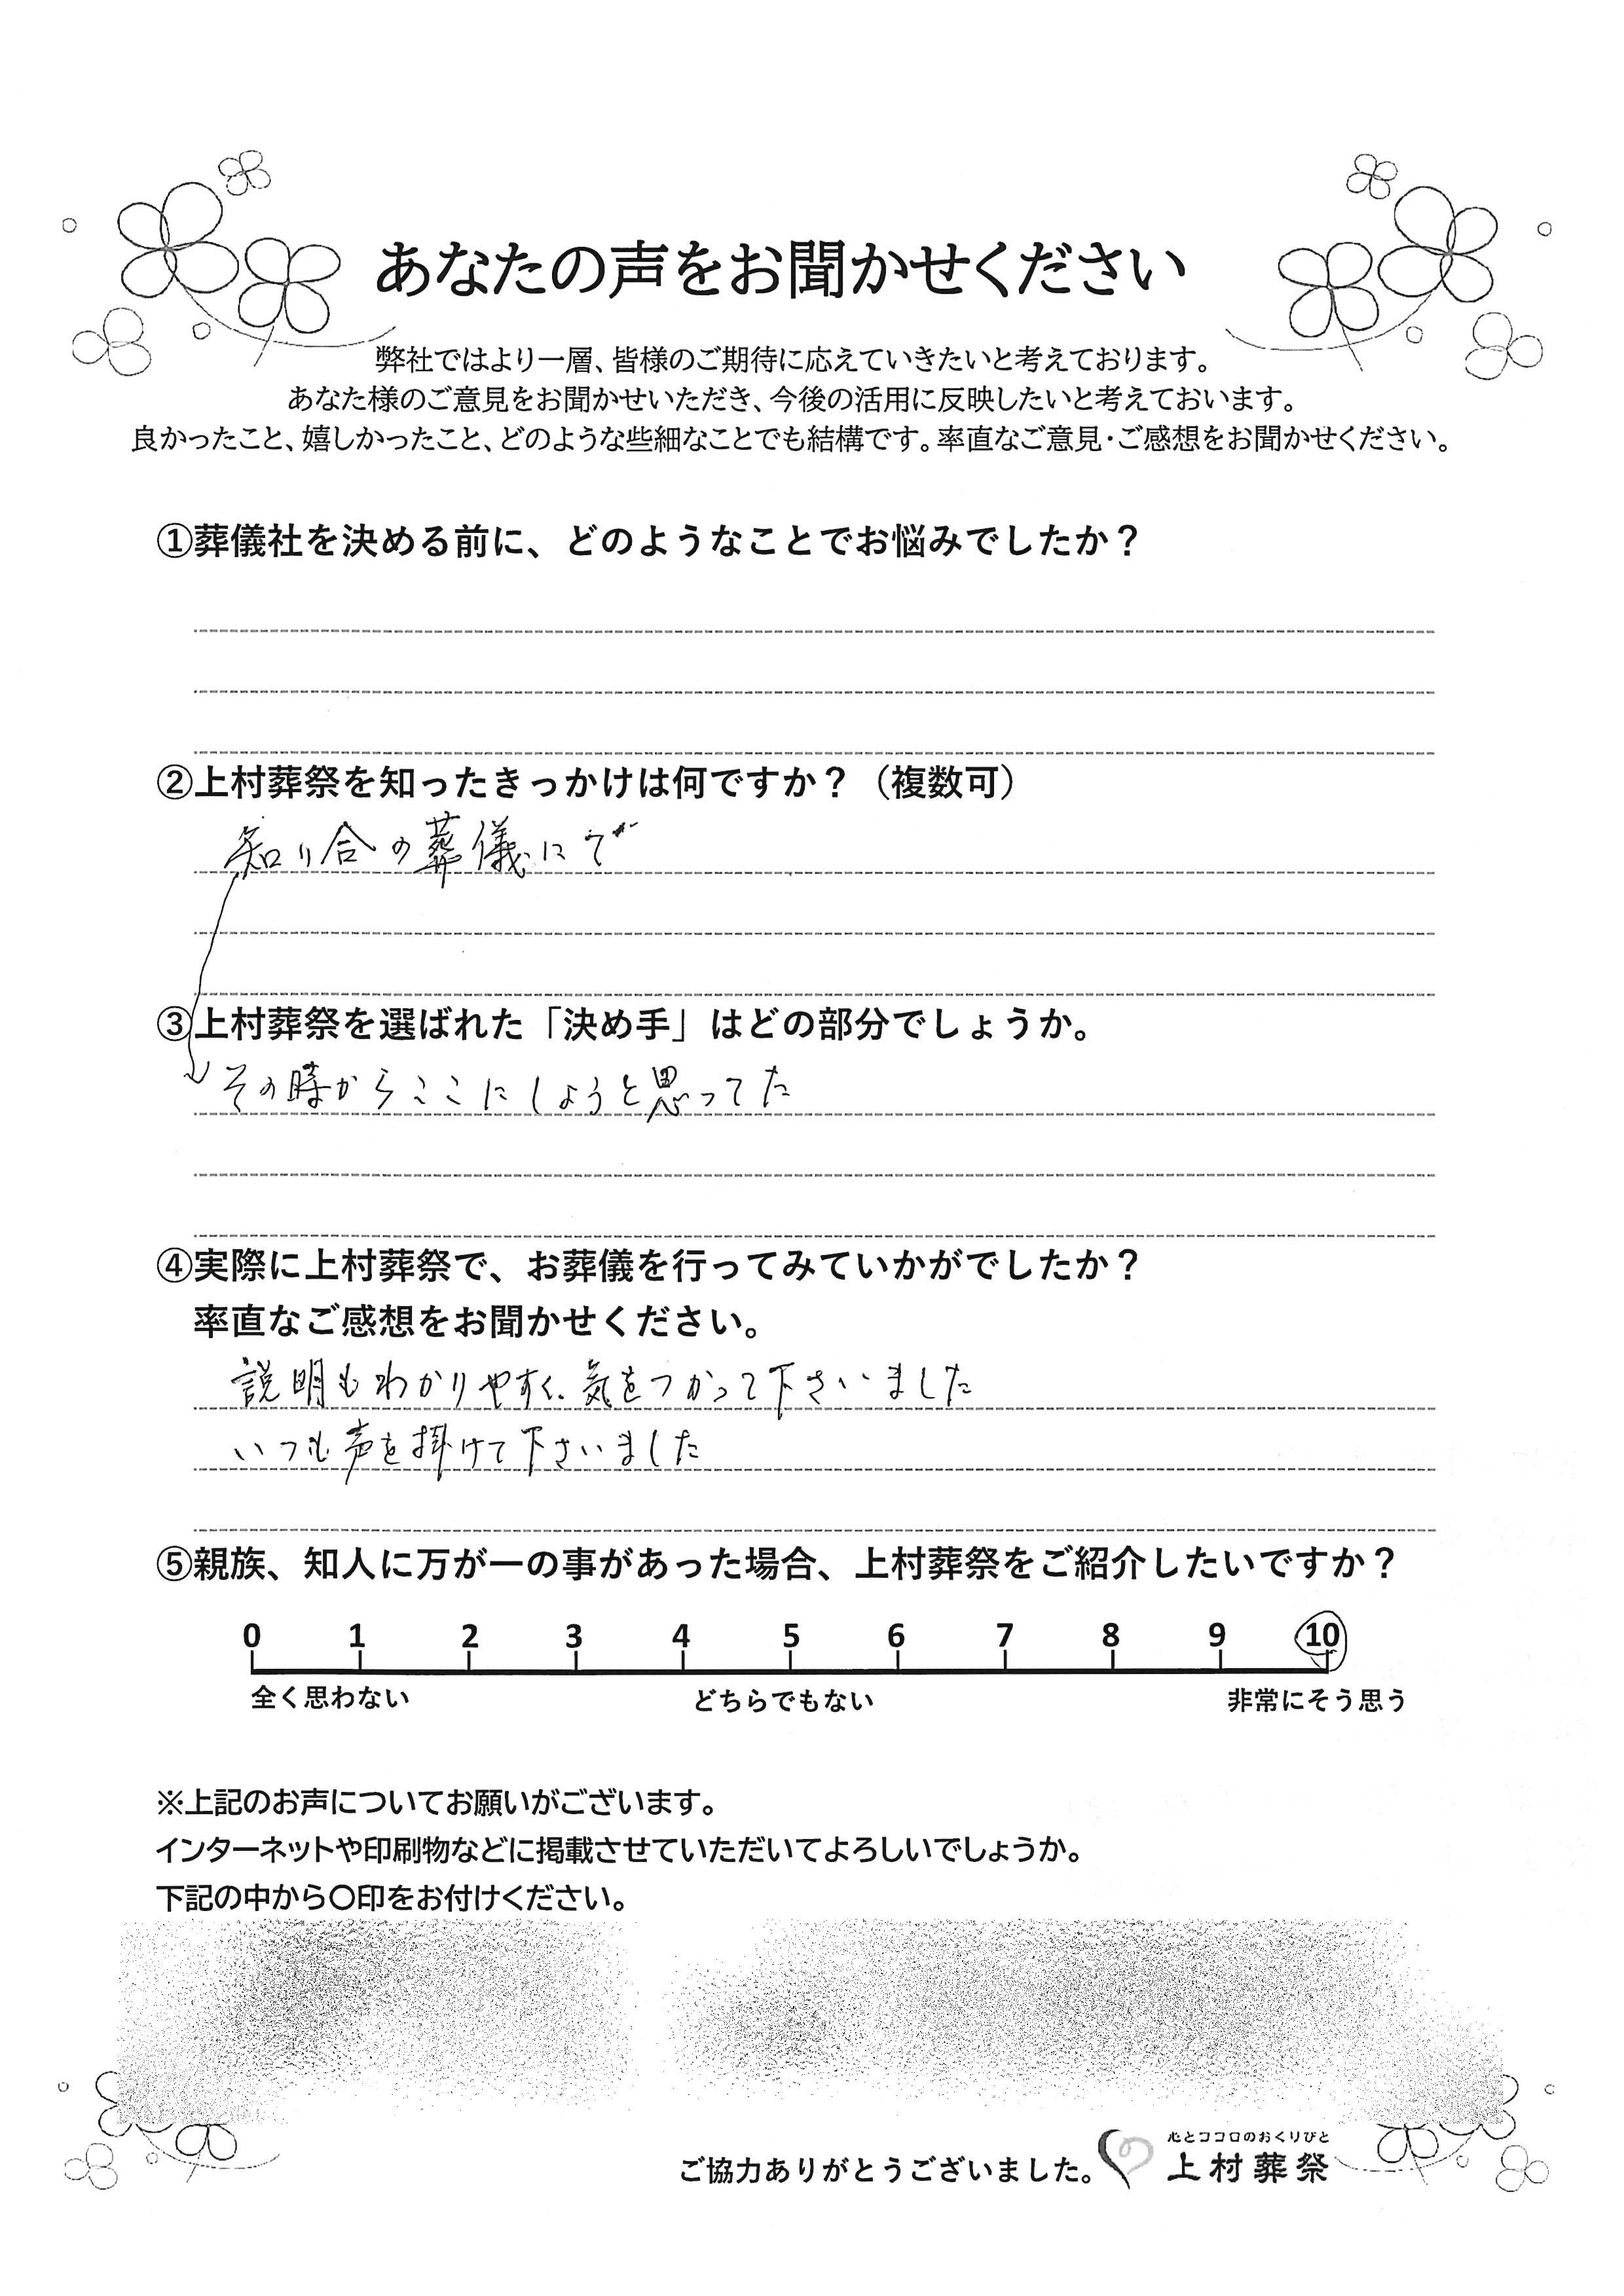 あなたの声をお聞かせください
弊社ではより一層、皆様のご期待に応えていきたいと考えております。
あなた様のご意見をお聞かせいただき、今後の活用に反映したいと考えておいます。
良かったこと、嬉しかったこと、どのような些細なことでも結構です。率直なご意見・ご感想をお聞かせください。
①葬儀社を決める前に、どのようなことでお悩みでしたか？
②上村葬祭を知ったきっかけは何ですか？（複数可）
知り合の葬儀にで
③上村葬祭を選ばれた「決め手」はどの部分でしょうか。
その時からここにしようと思ってた
④実際に上村葬祭で、お葬儀を行ってみていかがでしたか？
率直なご感想をお聞かせください。
説明もわかりやすく、気をつかって下さいました
いつも声を掛けて下さいました
⑤親族、知人に万が一の事があった場合、上村葬祭をご紹介したいですか？
0 1 2 3 4 5 6 7 8 9 10
全く思わない どちらでもない 非常にそう思う
※上記のお声についてお願いがございます。
インターネットや印刷物などに掲載させていただいてよろしいでしょうか。
下記の中から〇印をお付けください。
心とココロのおくりびと
ご協力ありがとうございました。 上村葬祭